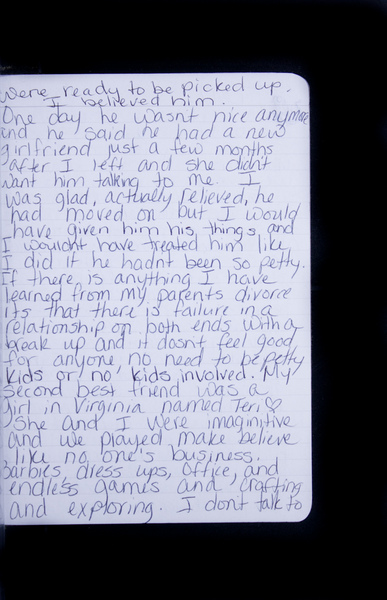 were ready to be picked up.
I believed him.
One day he wasnt nice anymore
and he said he had a new
girlfriend just a few months
after I left and she didn't
want him talking to me. I
was glad, actually relieved, he
had moved on but I would
have given him his things, and
I wouldnt have treated him like
I did if he hadnt been so petty.
If there is anything I have
learned from my parents divorce
its that there is failure in a
relationship on both ends with a
break up and it dosnt feel good
for anyone, no need to be petty
kids or no kids involved. My
second best friend was a
girl in Virginia named Teri♡
She and I were imaginitive
and we played make believe
like no one's business.
Barbies, dress ups, office, and
endless games and crafting
and exploring. I dont talk to